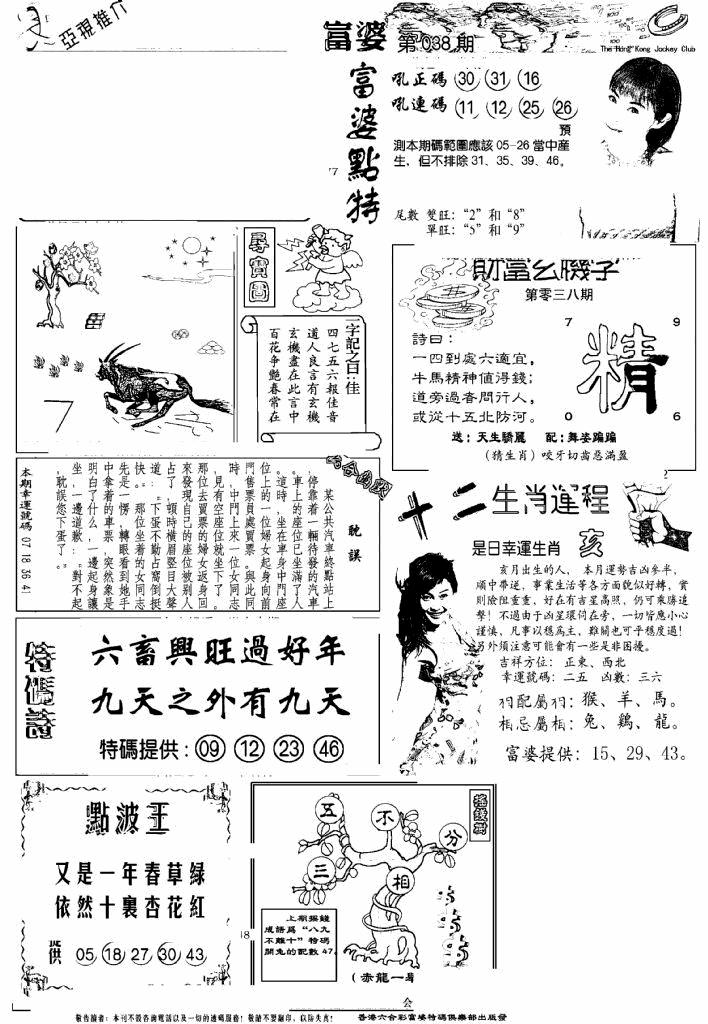 亞視推介
富婆 第038期
The Hong Kong Jockey Club
富婆點特
吼正碼 30 31 16
吼連碼 11 12 25 26
預
測本期碼範圍應該05-26當中産
生，但不排除31、35、39、46。
尾數 雙旺：“2”和“8”
單旺：“5”和“9”
尋寶圖
7
一字記之曰：佳
四七五六報佳音
道人良言有玄機
玄機盡在此言中
百花争艷春常在
財富玄機子
第零三八期
詩曰：
一四到處六適宜，
牛馬精神値得錢；
道旁過沓問行人，
或從十五北防河。
7 9
精
0 6
送：天生驕麗 配：舞姿蹁蹁
（猜生肖）咬牙切齒惡滿盈
耽誤
某公共汽車終點站上
停靠着一輛待發的汽車
。車上的座位已坐滿了人
。這時，坐在車身中門座
位上的一位婦女起身向前
門售票員處買票。與此同
時，中門上來一位女同志
，見有空座位就坐下了。
那位去買票的婦女返身回
來發現自己的座位被别人
占了，頓時橫眉竪目大聲
道：“下蛋不勤占窩倒挺
快。”那位坐着的女同志
先是一愣，轉眼看到她手
中拿着的車票，突然象是
明白了什麽，一邊起身讓
坐，一邊道歉：“對不起
，耽誤您下蛋了。”
本期幸運號碼 07 18 36 41
十二生肖運程
是日幸運生肖 亥
亥月出生的人，本月運勢吉凶參半，
順中帶逆，事業生活等各方面貌似好轉，實
則險阻重重，好在有吉星高照，仍可乘勝追
擊！不過由于凶星環伺在旁，一切皆應小心
謹慎，凡事以穩爲主，難關也可平穩度過！
另外須注意可能會有一些是非困擾。
吉祥方位：正東、西北
幸運號碼：二五 凶數：三六
相配屬相：猴、羊、馬。
相忌屬相：兔、鷄、龍。
富婆提供：15、29、43。
特碼詩
六畜興旺過好年
九天之外有九天
特碼提供：09 12 23 46
點波王
又是一年春草绿
依然十裏杏花紅
提供 05 18 27 30 43
搖錢樹
五 不 分
三 相
上期摇錢
成語爲“八九
不離十”特碼
開兔的配數47
（赤龍一
会
敬告讀者：本刊不設咨詢電話以及一切的連碼服務！敬請不要翻印，以防失真！
香港六合彩富婆特碼俱樂部出版發